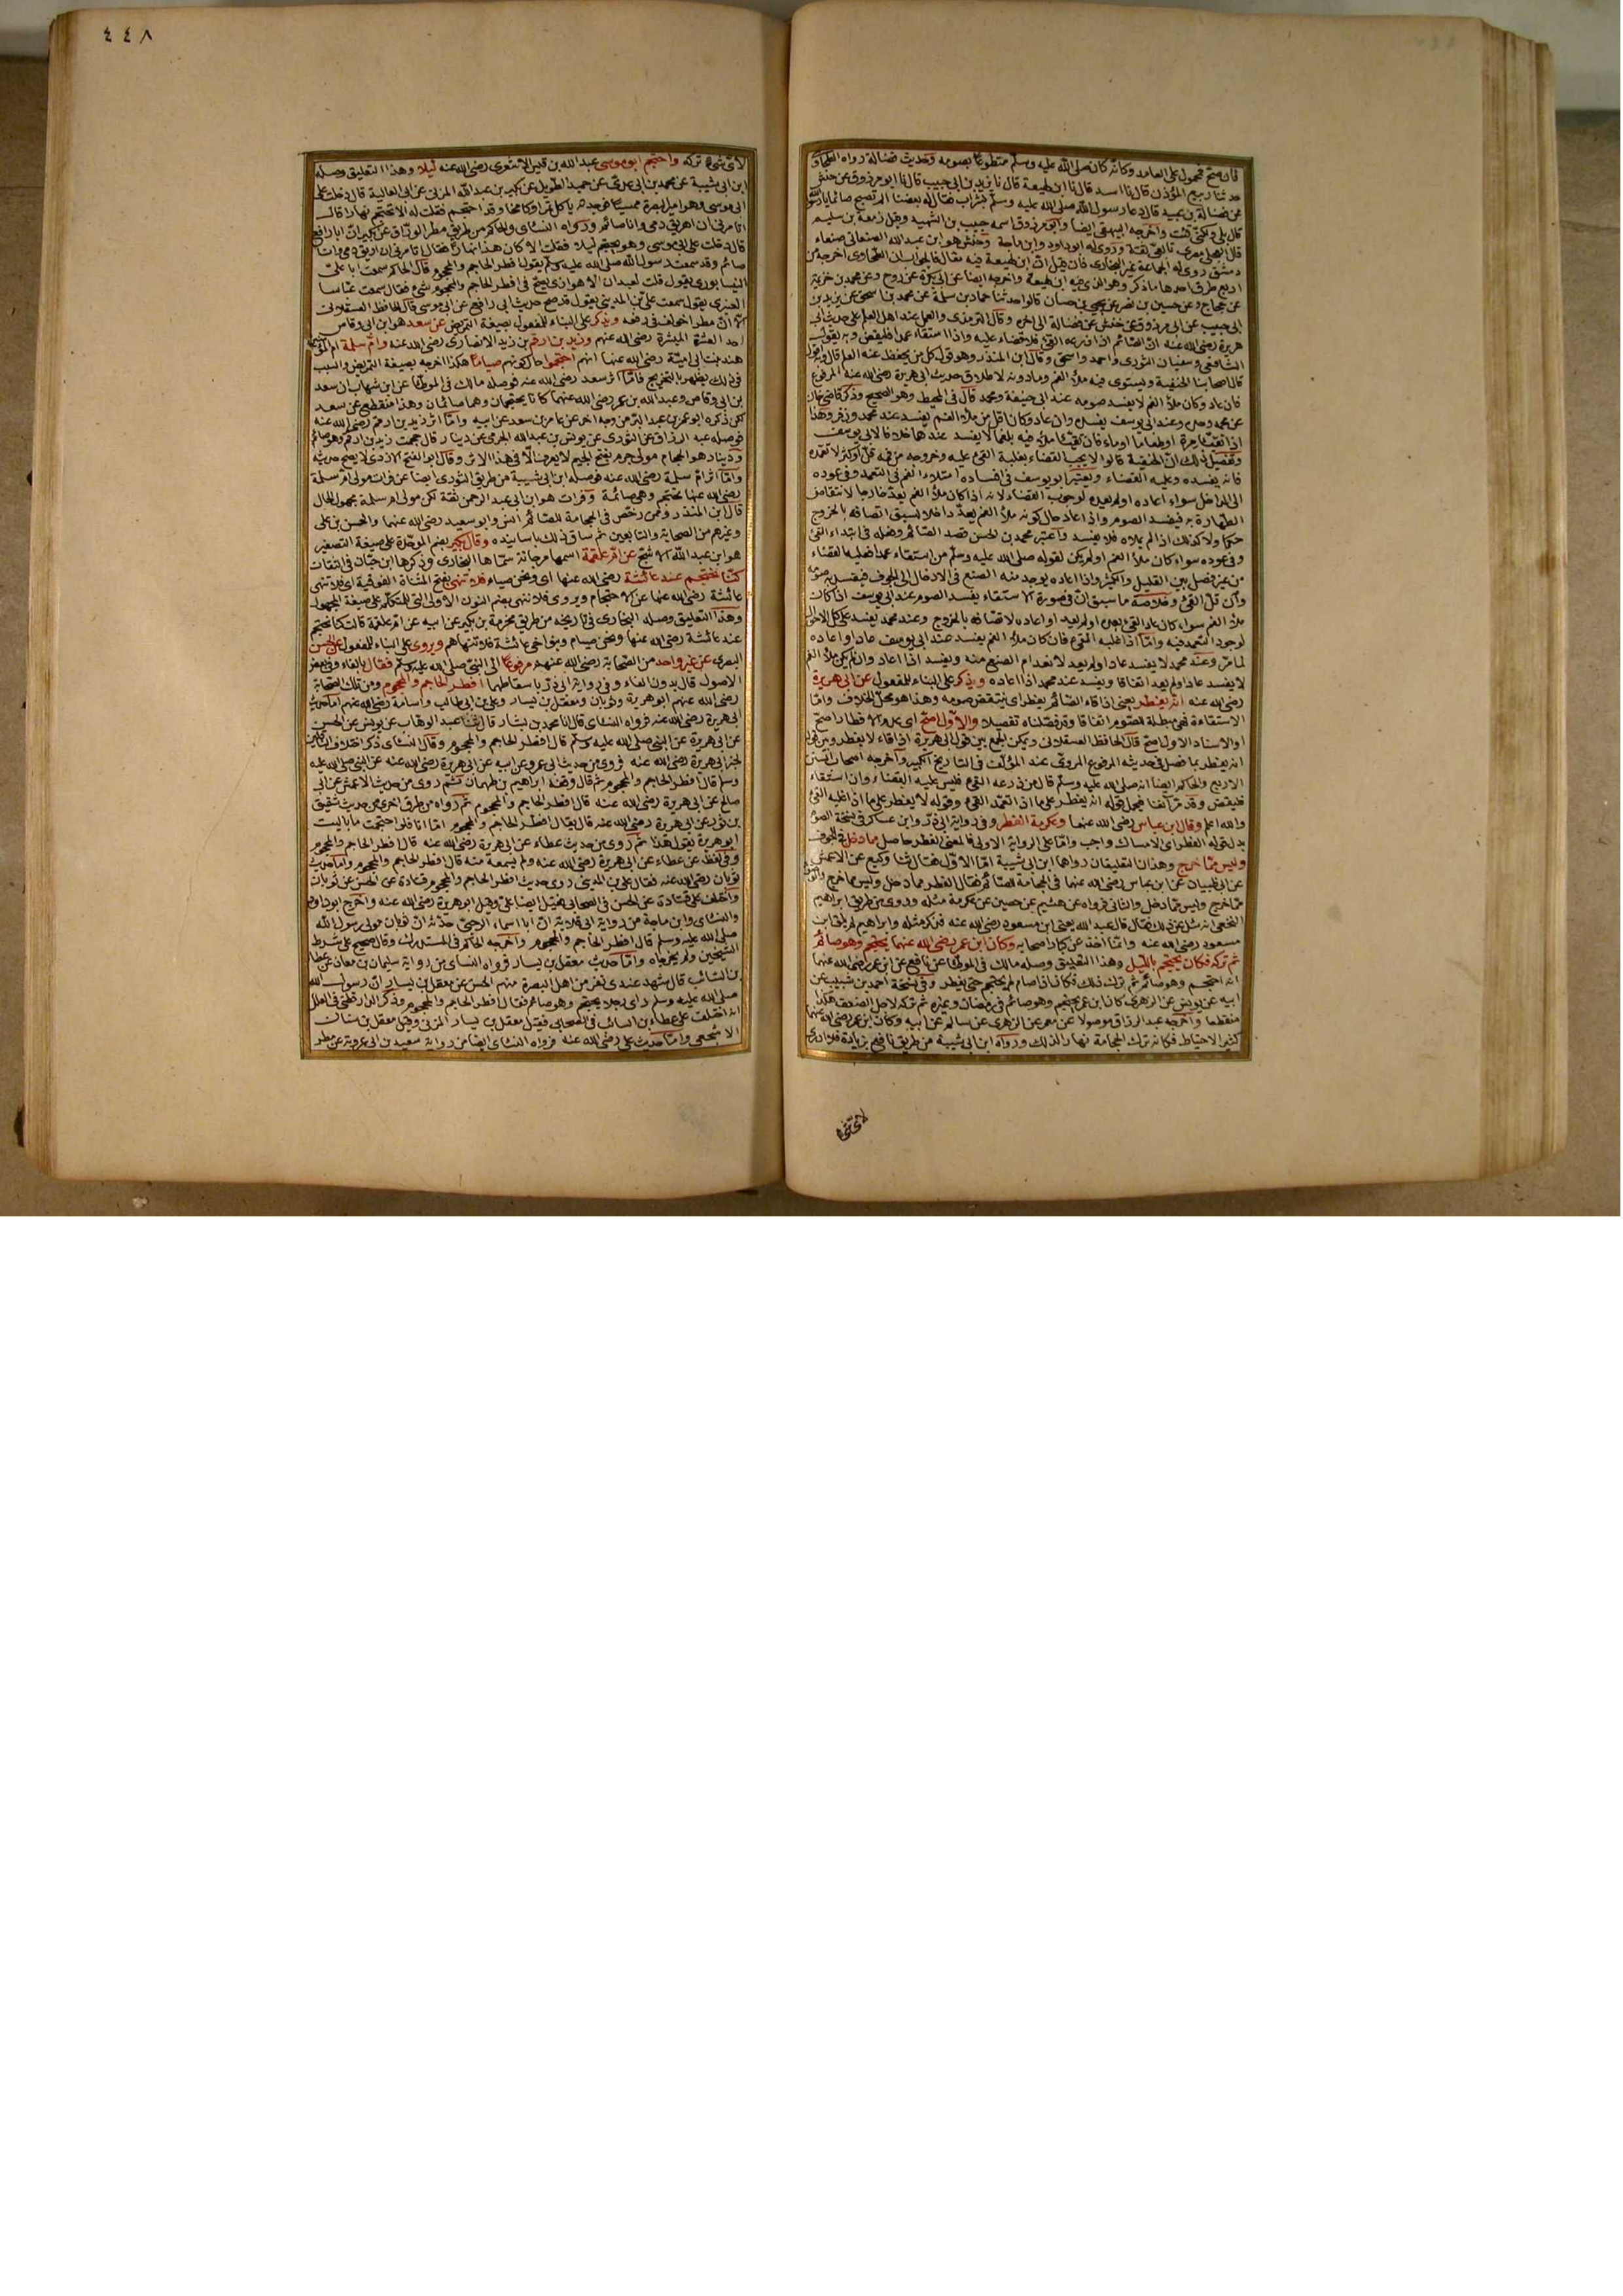 فان صح فمحمول على العامد وكأنه كان صلى الله عليه وسلم متطوعا بصومه وحديث فضالة رواه الطحاوي
حدثنا ربيع المؤذن قال نا اسد قال نا ابن لهيعة قال نا يزيد بن ابي حبيب قال نا ابو مرزوق عن حنش
عن فضالة بن عبيد قال دعا رسول الله صلى الله عليه وسلم بشراب فقال له بعضنا الم تصبح صائما يا رسول الله
قال بلى ولكني قئت واخرجه البيهقي ايضا وابو مرزوق اسمه حبيب بن الشهيد وقيل زمعة بن سليم
قال العجلي مصري تابعي ثقة وروى له ابو داود وابن ماجة وحنش هو ابن عبد الله الصنعاني صنعاء
دمشق روى له الجماعة غير البخاري فان قيل ان ابن لهيعة فيه مقال فالجواب ان الطحاوي اخرجه من
اربع طرق احدها ما ذكر وهو الذي فيه ابن لهيعة واخرجه ايضا عن ابي بكرة عن روح وعن محمد بن خزيمة
عن حجاج وعن حسين بن نصر عن يحيى بن حسان قالوا حدثنا حماد بن سلمة عن محمد بن اسحق عن يزيد بن
ابي حبيب عن ابي مرزوق عن حنش عن فضالة الى اخره وقال الترمذي والعمل عند اهل العلم على حديث ابي
هريرة رضي الله عنه ان الصائم اذا ذرعه القئ فلا قضاء عليه واذا استقاء عمدا فليقض وبه يقول
الشافعي وسفيان الثوري واحمد واسحق وقال ابن المنذر وهو قول كل من يحفظ عنه العلم قال وبه اقول
قال اصحابنا الحنفية ويستوي فيه ملأ الفم وما دونه لاطلاق حديث ابي هريرة رضي الله عنه المرفوع
فان عاد وكان ملأ الفم لا يفسد صومه عند ابي حنيفة ومحمد قال في المحيط وهو الصحيح وذكر قاضي خان
عن محمد وحده وعند ابي يوسف يفسده وان عاد وكان اقل من ملأ الفم يفسد عند محمد وزفر وهذا
اذا تقيأ مرة او طعاما او ماء فان تقيأ ملأ فيه بلغما لا يفسد عندهما خلافا لابي يوسف
وتفصيل ذلك ان الحنفية قالوا لا يجب القضاء بغلبة القئ عليه وخروجه من فمه قل او كثر لا تعمده
فانه يفسده وعليه القضاء ويعتبر ابو يوسف في افساده امتلاء الفم في التعمد وفي عوده
الى الداخل سواء اعاده او لم يعده لوجوب القضاء لانه اذا كان ملأ الفم يعد خارجا لانتقاض
الطهارة به فيفسد الصوم واذا اعاد حال كونه ملأ الفم يعد داخلا لسبق اتصافه بالخروج
حكما ولا كذلك اذا لم يملاه فلا يفسد واعتبر محمد بن الحسن قصد الصائم وفعله في ابتداء القئ
وفي عوده سواء كان ملأ الفم او لم يكن لقوله صلى الله عليه وسلم من استقاء عمدا فعليه القضاء
من غير فصل بين القليل والكثير واذا اعاده يوجد منه الصنع في الادخال الى الجوف فيفسد به صومه
وان قل القئ وخلاصة ما سبق ان في صورة الاستقاء يفسد الصوم عند ابي يوسف اذا كان
ملأ الفم سواء كان عاد القئ بعده او لم يعد او اعاده لاتصافه بالخروج وعند محمد يفسد على كل الاحوال
لوجود التعمد فيه واما اذا غلبه القئ فان كان ملأ الفم يفسد عند ابي يوسف عاد او اعاده
لما مر وعند محمد لا يفسد عاد او لم يعد لانعدام الصنع منه ويفسد اذا اعاد وان لم يكن ملأ الفم
لا يفسد عاد او لم يعد اتفاقا ويفسد عند محمد اذا اعاده ويذكر على البناء للمفعول عن ابي هريرة
رضي الله عنه انه يفطر يعني اذا قاء الصائم يفطر اي ينتقض صومه وهذا هو محل الخلاف واما
الاستقاءة فهي مبطلة للصوم اتفاقا وقد فصلناه تفصيلا والاول اصح اي عدم الافطار اصح
او الاسناد الاول اصح قال الحافظ العسقلاني ويمكن الجمع بين قول ابي هريرة اذا قاء لا يفطر وبين قوله
انه يفطر بما فصل في حديثه المرفوع المروي عند المؤلف في التاريخ الكبير واخرجه اصحاب السنن
الاربع والحاكم ايضا انه صلى الله عليه وسلم قال من ذرعه القئ فليس عليه القضاء وان استقاء
فليقض وقد مر آنفا فيحمل قوله انه يفطر على ما اذا تعمد القئ وقوله لا يفطر على ما اذا غلبه القئ
والله اعلم وقال ابن عباس رضي الله عنهما وعكرمة الفطر وفي رواية ابي ذر وابن عساكر في نسخة الصوم
بدل قوله الفطر اي الامساك واجب واما على الرواية الاولى فالمعنى الفطر حاصل مما دخل في الجوف
وليس مما خرج وهذان التعليقان رواهما ابن ابي شيبة اما الاول فقال ثنا وكيع عن الاعمش
عن ابي ظبيان عن ابن عباس رضي الله عنهما في الحجامة للصائم فقال الفطر مما دخل وليس مما خرج
مما خرج وليس مما دخل والثاني فرواه عن هشيم عن حصين عن عكرمة مثله وروى من طريق ابراهيم
النخعي انه سئل عن ذلك فقال قال عبد الله يعني ابن مسعود رضي الله عنه فذكر مثله وابراهيم لم يلق ابن
مسعود رضي الله عنه وانما اخذ عن كبار اصحابه وكان ابن عمر رضي الله عنهما يحتجم وهو صائم
ثم تركه فكان يحتجم بالليل وهذا التعليق وصله مالك في الموطأ عن نافع عن ابن عمر رضي الله عنهما
انه احتجم وهو صائم ثم ترك ذلك فكان اذا صام لم يحتجم حتى يفطر وفي نسخة احمد بن شبيب عن
ابيه عن يونس عن الزهري كان ابن عمر يحتجم وهو صائم في رمضان وغيره ثم تركه لاجل الضعف هكذا
منقطعا واخرجه عبد الرزاق موصولا عن معمر عن الزهري عن سالم عن ابيه وكان ابن عمر رضي الله عنهما
كثير الاحتياط فكأنه ترك الحجامة نهارا لذلك ورواه ابن ابي شيبة من طريق نافع بزيادة فلا ادري
لاي شئ
٤٤٨
لاي شئ تركه واحتجم ابو موسى عبد الله بن قيس الاشعري رضي الله عنه ليلا وهذا التعليق وصله
ابن ابي شيبة عن محمد بن ابي عدي عن حميد الطويل عن بكر بن عبد الله المزني عن ابي العالية قال دخلت على
ابي موسى وهو امير البصرة ممسيا فوجدته يأكل تمرا وكامخا وقد احتجم فقلت له الا تحتجم نهارا قال
اتأمرني ان اهريق دمي وانا صائم ورواه النسائي والحاكم من طريق مطر الوراق عن بكر ان ابا رافع
قال دخلت على ابي موسى وهو يحتجم ليلا فقلت الا كان هذا نهارا فقال اتأمرني ان اريق دمي وانا
صائم وقد سمعت رسول الله صلى الله عليه وسلم يقول افطر الحاجم والمحجوم قال الحاكم سمعت ابا علي
النيسابوري يقول قلت لعبدان الاهوازي يصح في افطر الحاجم والمحجوم شئ فقال سمعت عباسا
العنبري يقول سمعت علي بن المديني يقول قد صح حديث ابي رافع عن ابي موسى قال الحافظ العسقلاني
الا ان مطرا خولف في رفعه ويذكر على البناء للمفعول بصيغة التمريض عن سعد هو ابن ابي وقاص
احد العشرة المبشرة رضي الله عنهم وزيد بن ارقم بن زيد الانصاري رضي الله عنه وام سلمة ام المؤمنين
هند بنت ابي امية رضي الله عنها انهم احتجموا حال كونهم صياما هكذا اخرجه بصيغة التمريض والسبب
في ذلك يظهر بالتخريج فاما اثر سعد رضي الله عنه فوصله مالك في الموطأ عن ابن شهاب ان سعد
بن ابي وقاص وعبد الله بن عمر رضي الله عنهما كانا يحتجمان وهما صائمان وهذا منقطع عن سعد
لكن ذكره ابو عمر بن عبد البر من وجه اخر عن عامر بن سعد عن ابيه واما اثر زيد بن ارقم رضي الله عنه
فوصله عبد الرزاق عن الثوري عن يونس بن عبد الله الجرمي عن دينار قال حجمت زيد بن ارقم وهو صائم
ودينار هو الحجام مولى جرم بفتح الجيم لا يعرف الا في هذا الاثر وقال ابو الفتح الازدي لا يصح حديثه
واما اثر ام سلمة رضي الله عنه فوصله ابن ابي شيبة من طريق الثوري ايضا عن فرات مولى ام سلمة
رضي الله عنها تحتجم وهي صائمة وفرات هو ابن ابي عبد الرحمن ثقة لكن مولى ام سلمة مجهول الحال
قال ابن المنذر وممن رخص في الحجامة للصائم انس وابو سعيد رضي الله عنهما والحسن بن علي
وغيرهم من الصحابة والتابعين ثم ساق ذلك باسانيده وقال بكير بضم الموحدة على صيغة التصغير
هو ابن عبد الله الاشج عن ام علقمة اسمها مرجانة سماها البخاري وذكرها ابن حبان في الثقات
كنا نحتجم عند عائشة رضي الله عنها اي ونحن صيام فلا تنهى بفتح المثناة الفوقية اي فلا تنهى
عائشة رضي الله عنها عن الاحتجام ويروى فلا ننهى بضم النون الاولى التي للمتكلم على صيغة المجهول
وهذا التعليق وصله البخاري في تاريخه من طريق مخرمة بن بكير عن ابيه عن ام علقمة قالت كنا نحتجم
عند عائشة رضي الله عنها ونحن صيام وبنو اخي عائشة فلا تنهاهم ويروى على البناء للمفعول عن الحسن
البصري عن غير واحد من الصحابة رضي الله عنهم مرفوعا الى النبي صلى الله عليه وسلم فقال بالفاء وفي بعض
الاصول قال بدون الفاء وفي رواية ابي ذر باسقاطهما افطر الحاجم والمحجوم ومن تلك الصحابة
رضي الله عنهم ابو هريرة وثوبان ومعقل بن يسار وعلي بن ابي طالب واسامة رضي الله عنهم اما حديث
ابي هريرة رضي الله عنه فرواه النسائي قال انا محمد بن بشار قال ثنا عبد الوهاب عن يونس عن الحسن
عن ابي هريرة عن النبي صلى الله عليه وسلم قال افطر الحاجم والمحجوم وقال النسائي ذكر اختلاف الناقلين
لخبر ابي هريرة رضي الله عنه فروى من حديث ابي عمرو عن ابيه عن ابي هريرة رضي الله عنه عن النبي صلى الله عليه
وسلم قال افطر الحاجم والمحجوم ثم قال وقفه ابراهيم بن طهمان ثم روى من حديث الاعمش عن ابي
صالح عن ابي هريرة رضي الله عنه قال افطر الحاجم والمحجوم ثم رواه من طرق اخرى من حديث شقيق
بن ثور عن ابي هريرة رضي الله عنه قال يقال افطر الحاجم والمحجوم اما انا فلو احتجمت ما باليت
ابو هريرة يقول هذا ثم روى من حديث عطاء عن ابي هريرة رضي الله عنه قال افطر الحاجم والمحجوم
وفي لفظ عن عطاء عن ابي هريرة رضي الله عنه ولم يسمعه منه قال افطر الحاجم والمحجوم واما حديث
ثوبان رضي الله عنه فقال علي بن المديني روى حديث افطر الحاجم والمحجوم قتادة عن الحسن عن ثوبان
واختلف على قتادة عن الحسن في الصحابي فقيل ايضا علي وقيل ابو هريرة رضي الله عنه واخرج ابو داود
والنسائي وابن ماجة من رواية ابي قلابة ان ابا اسماء الرحبي حدثه ان ثوبان مولى رسول الله
صلى الله عليه وسلم قال افطر الحاجم والمحجوم واخرجه الحاكم في المستدرك وقال صحيح على شرط
الشيخين ولم يخرجاه واما حديث معقل بن يسار فرواه النسائي من رواية سليمان بن معاذ عن عطاء
بن السائب قال شهد عندي نفر من اهل البصرة منهم الحسن عن معقل بن يسار ان رسول الله
صلى الله عليه وسلم رأى رجلا يحتجم وهو صائم فقال افطر الحاجم والمحجوم وذكر الدارقطني في العلل
انه اختلف على عطاء بن السائب في الصحابي فقيل معقل بن يسار المزني وقيل معقل بن سنان
الاشجعي واما حديث علي رضي الله عنه فرواه النسائي ايضا من رواية سعيد بن ابي عروبة عن مطر